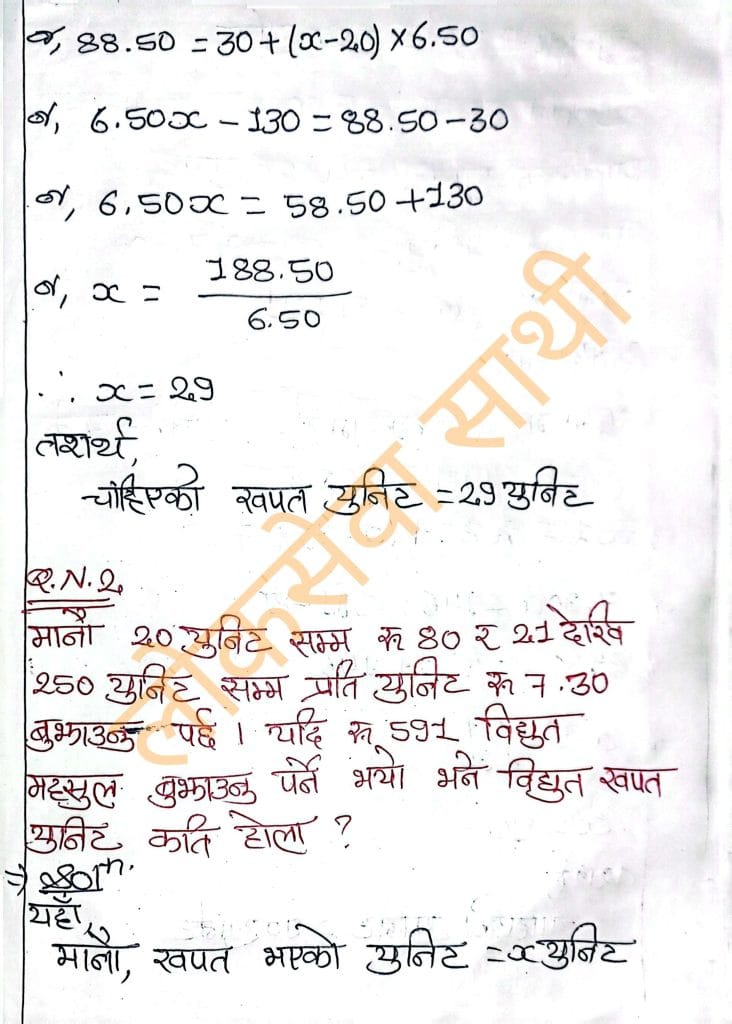 or, 88.50 = 30 + (x-20) × 6.50
or, 6.50x - 130 = 88.50 - 30
or, 6.50x = 58.50 + 130
or, x = 188.50 / 6.50
∴ x = 29
तसर्थ,
चाहिएको खपत युनिट = 29 युनिट
Q.N.2
मानौं 20 युनिट सम्म रु 80 र 21 देखि
250 युनिट सम्म प्रति युनिट रु 7.30
बुझाउनु पर्छ । यदि रु 591 विद्युत
महसुल बुझाउनु पर्ने भयो भने विद्युत खपत
युनिट कति होला ?
⇒ Solⁿ.
यहाँ,
मानौं, खपत भएको युनिट = x युनिट
लोकसेवा साथी